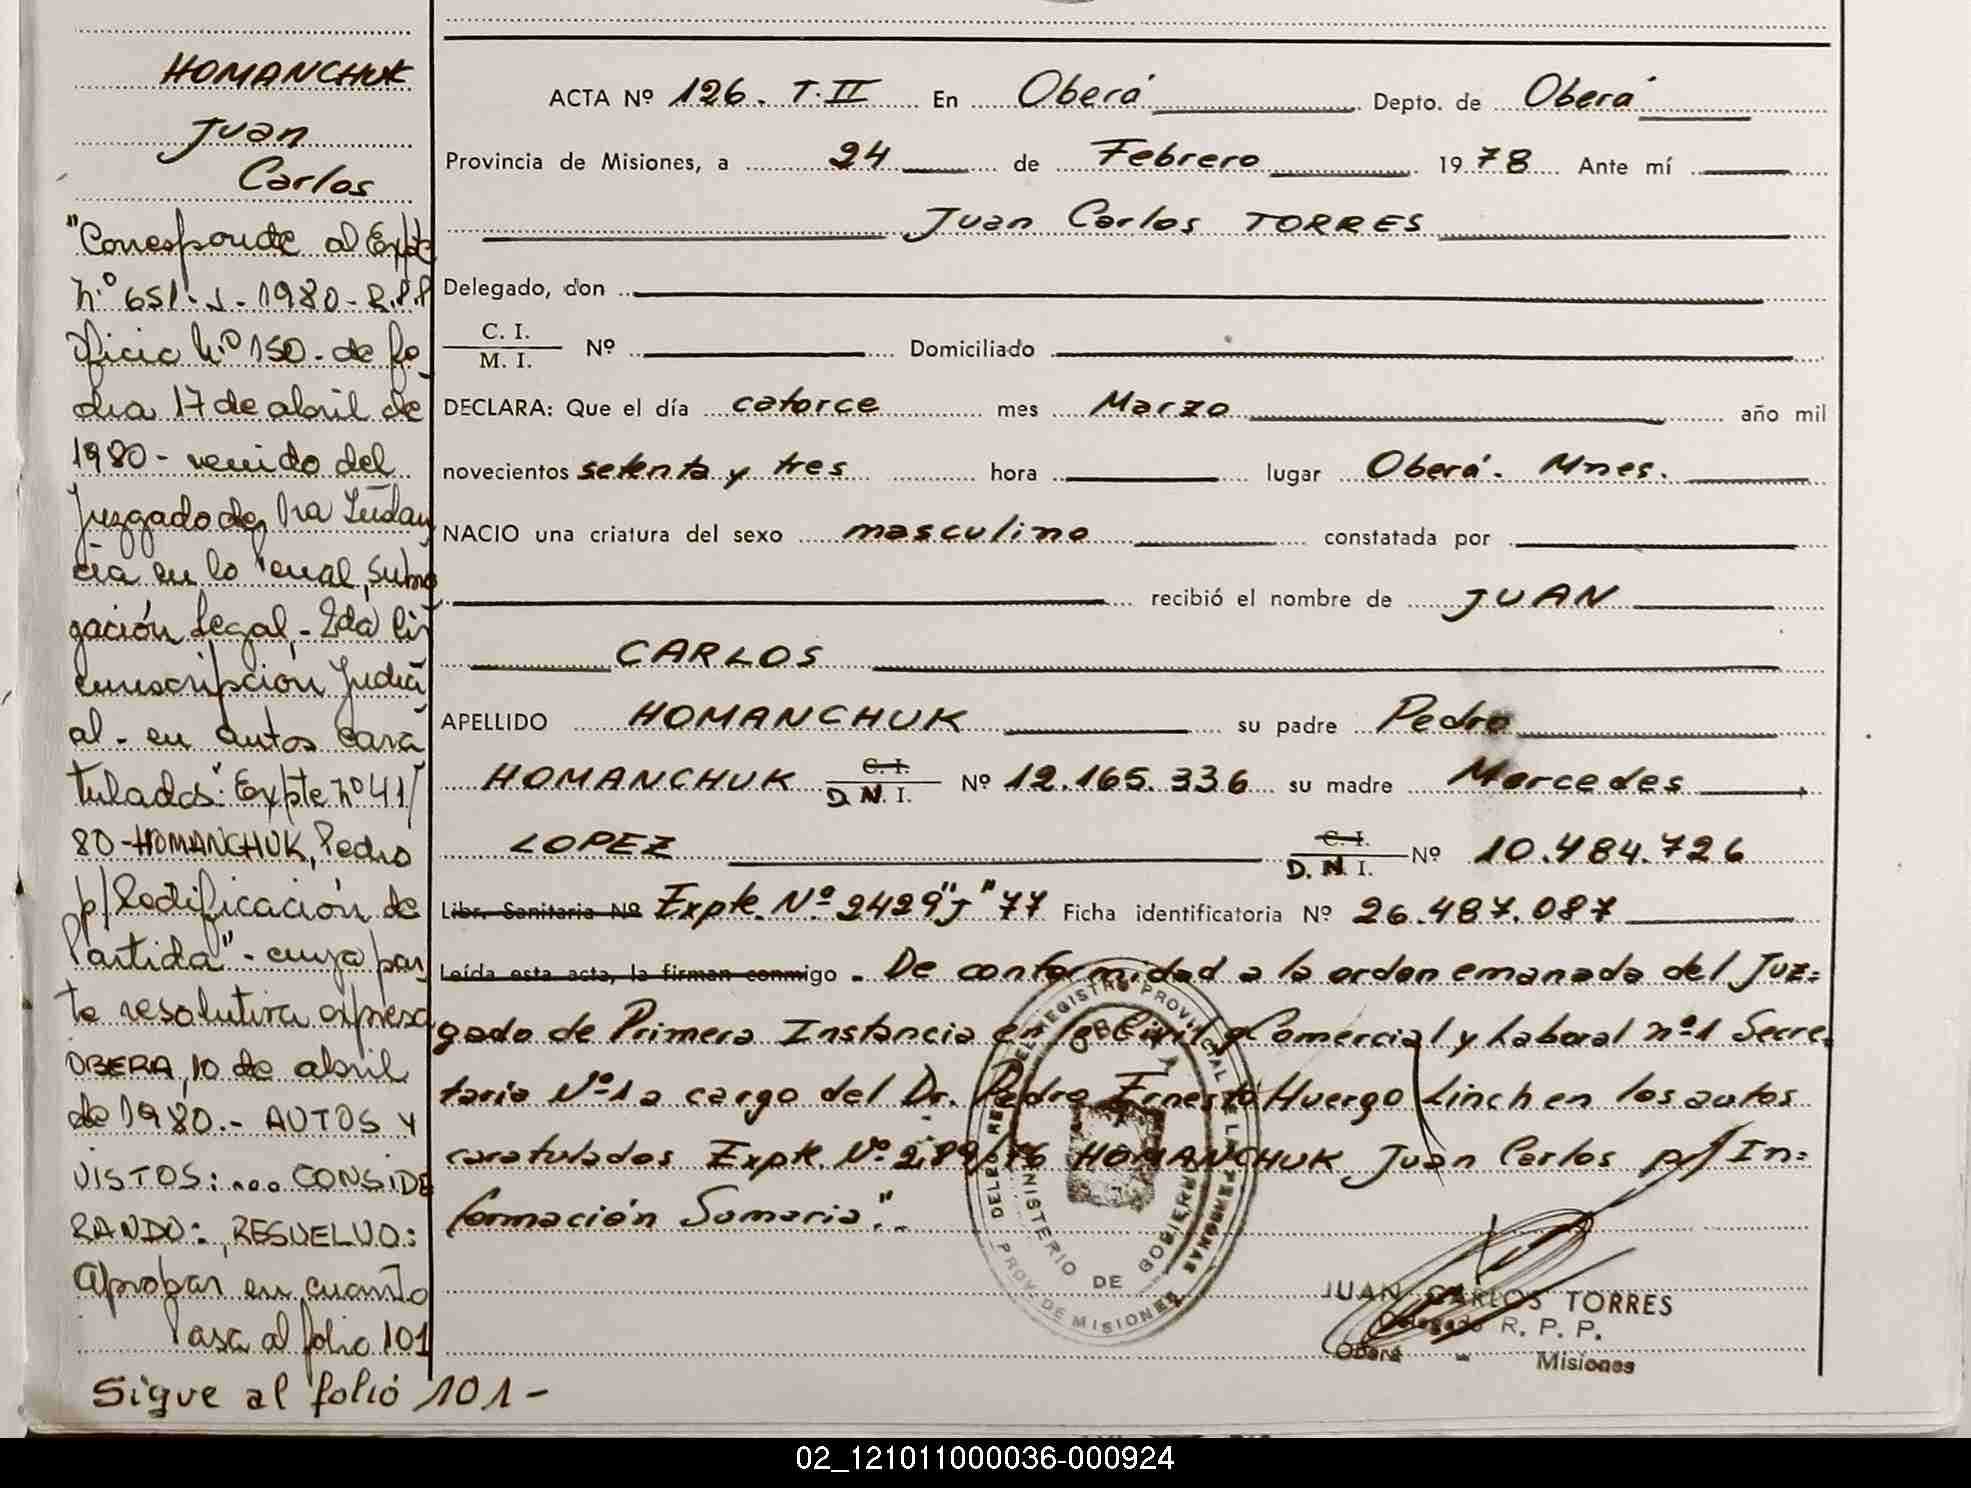 HOMANCHUK
Juan
Carlos
"Corresponde al Expte
Nº 651-J-1980-R.P.P
Oficio Nº 150- de fe-
cha 17 de abril de
1980- venido del
Juzgado de 1ra Instan
cia en lo
gación Legal,- 2da Cir
cunscripción Judici
al- en autos cara
tulados: Expte nº 41/
80-HOMANCHUK, Pedro
p/ Rectificación de
Partida"- cuya par
te resolutiva expresa
OBERA, 10 de abril
de 1980.- AUTOS Y
VISTOS:... CONSIDE
RANDO:, RESUELVO:
Aprobar en cuanto
Pasa al folio 101
Sigue al folió 101-
ACTA Nº 126. T.II En Oberá Depto. de Oberá
Provincia de Misiones, a 24 de Febrero 1978 Ante mí
Juan Carlos TORRES
Delegado, don
C. I.
M. I. Nº Domiciliado
DECLARA: Que el día catorce mes Marzo año mil
novecientos setenta y tres hora lugar Oberá. Mnes.
NACIO una criatura del sexo masculino constatada por
recibió el nombre de JUAN
CARLOS
APELLIDO HOMANCHUK su padre Pedro
HOMANCHUK C. I. D. N. I. Nº 12.165.336 su madre Mercedes
LOPEZ C. I. D. N. I. Nº 10.484.726
Libr. Sanitaria Nº Expte. Nº 2429 "J" 77 Ficha identificatoria Nº 26.487.087
Leída esta acta, la firman conmigo. De conformidad a la orden emanada del Juz=
gado de Primera Instancia en lo Civil y Comercial y Laboral nº1 Secre.
taria Nº1 a cargo del Dr. Pedro Ernesto Huergo Linch en los autos
caratulados Expte. Nº 2.89/76 HOMANCHUK Juan Carlos p/ In=
formación Sumaria".-
DELEG. REG. DEL REGISTRO PROVINCIAL DE LAS PERSONAS
OBERA
MINISTERIO DE GOBIERNO
PROV. DE MISIONES
JUAN CARLOS TORRES
Delegado R. P. P.
Oberá - Misiones
02_121011000036-000924